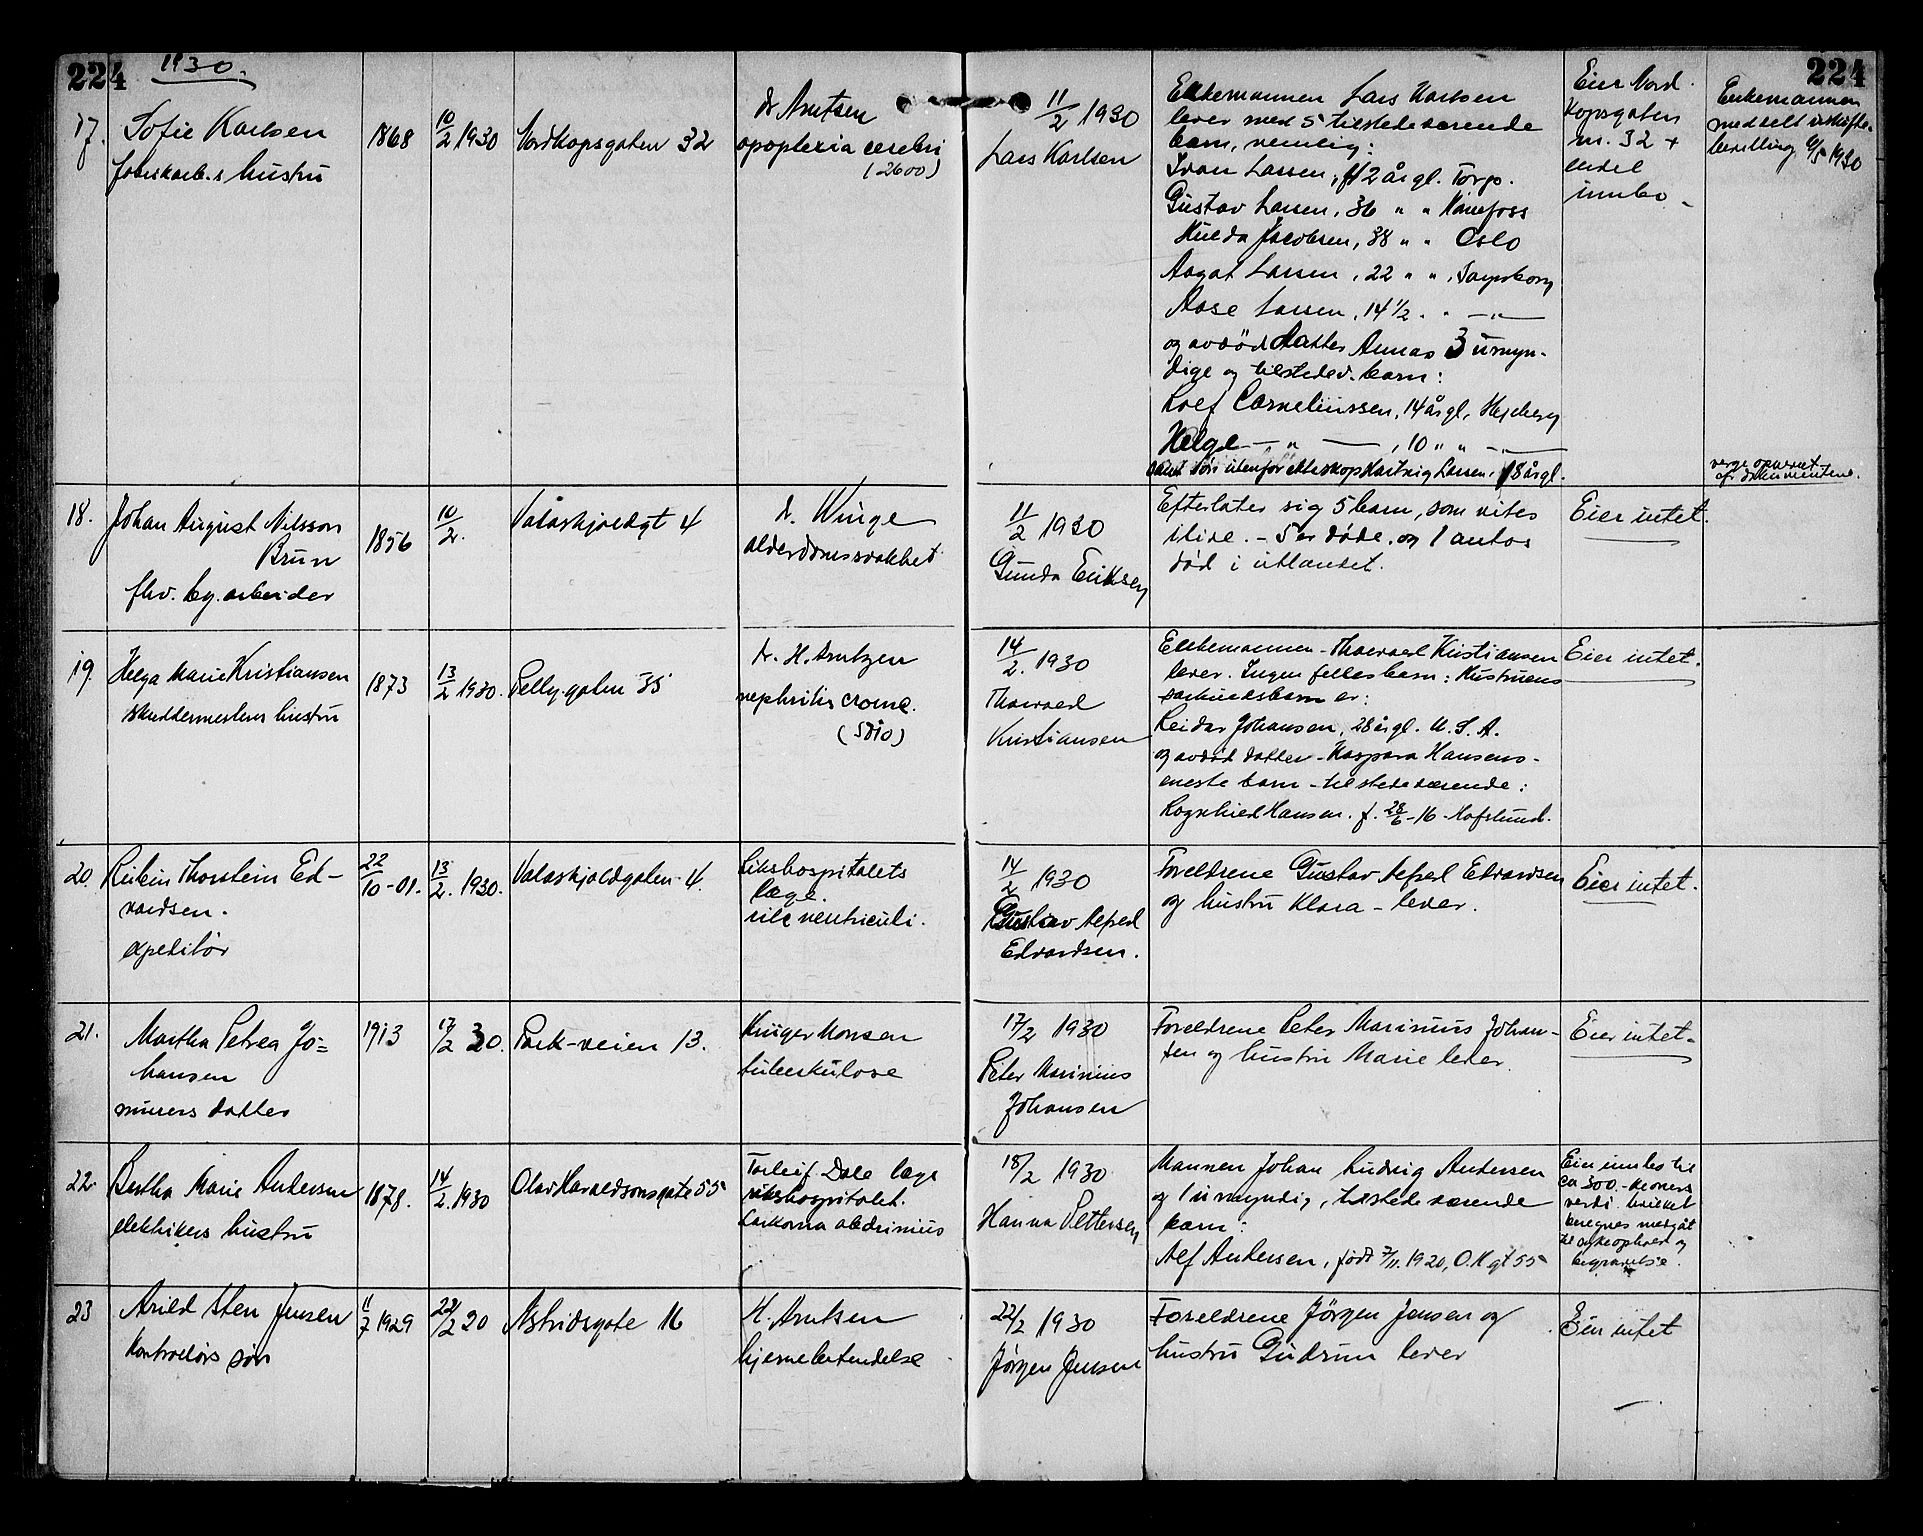 224
1930.
224
17.
Sofie Karlsen
fabrikarb.s hustru
1868
10/2 1930
Nordkapsgaten 32
dr Arntsen
apoplexia cerebri
(2600)
11/2 1930
Lars Karlsen
Enkemannen Lars Karlsen
lever med 5 tilstedeværende
barn, nemlig:
Ivan Larsen, 42 år gl. Torp.
Gustav Larsen, 36 " " Hønefoss
Hulda Jacobsen, 38 " " Oslo
Aagot Larsen, 22 " " Sarpsborg
Aase Larsen, 14 1/2 " " — " —
og avdød datter Annas 3 umyn-
dige og tilstedev. barn:
Leif Corneliussen, 14 år gl,
Helge — " — , 10 " " — " —
samt søn utenfor ekteskap Larsen, 18 år gl.
Eier Nord
kapsgaten
nr. 32 +
endel
innbo
Enkemannen
meddelt uskifte-
bevilling 6/5 1930
verge opnevnt
dokumentene.
18.
Johan August Nilsson
Brun
fhv. by. arbeider
1856
10/2.
Valaskjoldgt 4
dr. Winge
alderdomssvakhet
11/2 1930
Gunda Eriksen
Efterlater sig 5 barn, som vites
ilive. - 5 er døde. og 1 antas
død i utlandet.
Eier intet.
19.
Helga Marie Kristiansen
skreddermesters hustru
1873
13/2 1930.
Pellygaten 35
dr. H. Arntzen
nephritis cronic.
14/2. 1930
Thorvald
Kristiansen
Enkemannen - Thorvald Kristiansen
lever. Ingen felles barn: Hustruens
særkuldsbarn er:
Reidar Johansen, 28 år gl. U. S. A.
og avdød datter - Kaspara Hansens -
eneste barn - tilstedeværende:
Ragnhild Hansen. f. 28/6 - 16 - Hafslund.
Eier intet.
20.
Reibin Thorstein Ed-
vardsen.
expeditør
22/10 - 01.
13/2. 1930.
Valaskjoldgaten 4.
Rikshospitalets
læge.
ulc ventriculi.
14/2 1930
Gustav Alfred
Edvardsen.
Foreldrene Gustav Alfred Edvardsen
og hustru Klara - lever.
Eier intet.
21.
Martha Petrea Jo=
hansen
murers datter
1913
17/2 30.
Park-veien 13.
Krüger Monsen
tuberkulose
17/2 1930
Peter Marinius
Johansen
Foreldrene Peter Marinius Johan-
sen og hustru Marie lever.
Eier intet.
22.
Bertha Marie Andersen
elektrikers hustru
1878.
14/2. 1930
Olav Haraldsonsgate 55
Torleif Dale læge
rikshospitalet.
sarkoma abdominis
18/2 1930
Hanna Pettersen
Mannen Johan Ludvig Andersen
og 1 umyndig, tilstedeværende
barn:
Alf Andersen, født 7/11. 1920, O. H gt 55
Eier innbo til
ca 300.- kroners
verdi. hvilket
beregnes medgåt
til sykeophold og
begravelse.
23
Arild Sten Jensen
Kontrollørs søn
11/7 1929
22/2 30
Astridsgate 16
H. Arntsen
hjernebetendelse
22/2 1930
Jörgen Jensen
Foreldrene Jörgen Jensen og
hustru Gudrun lever
Eier intet